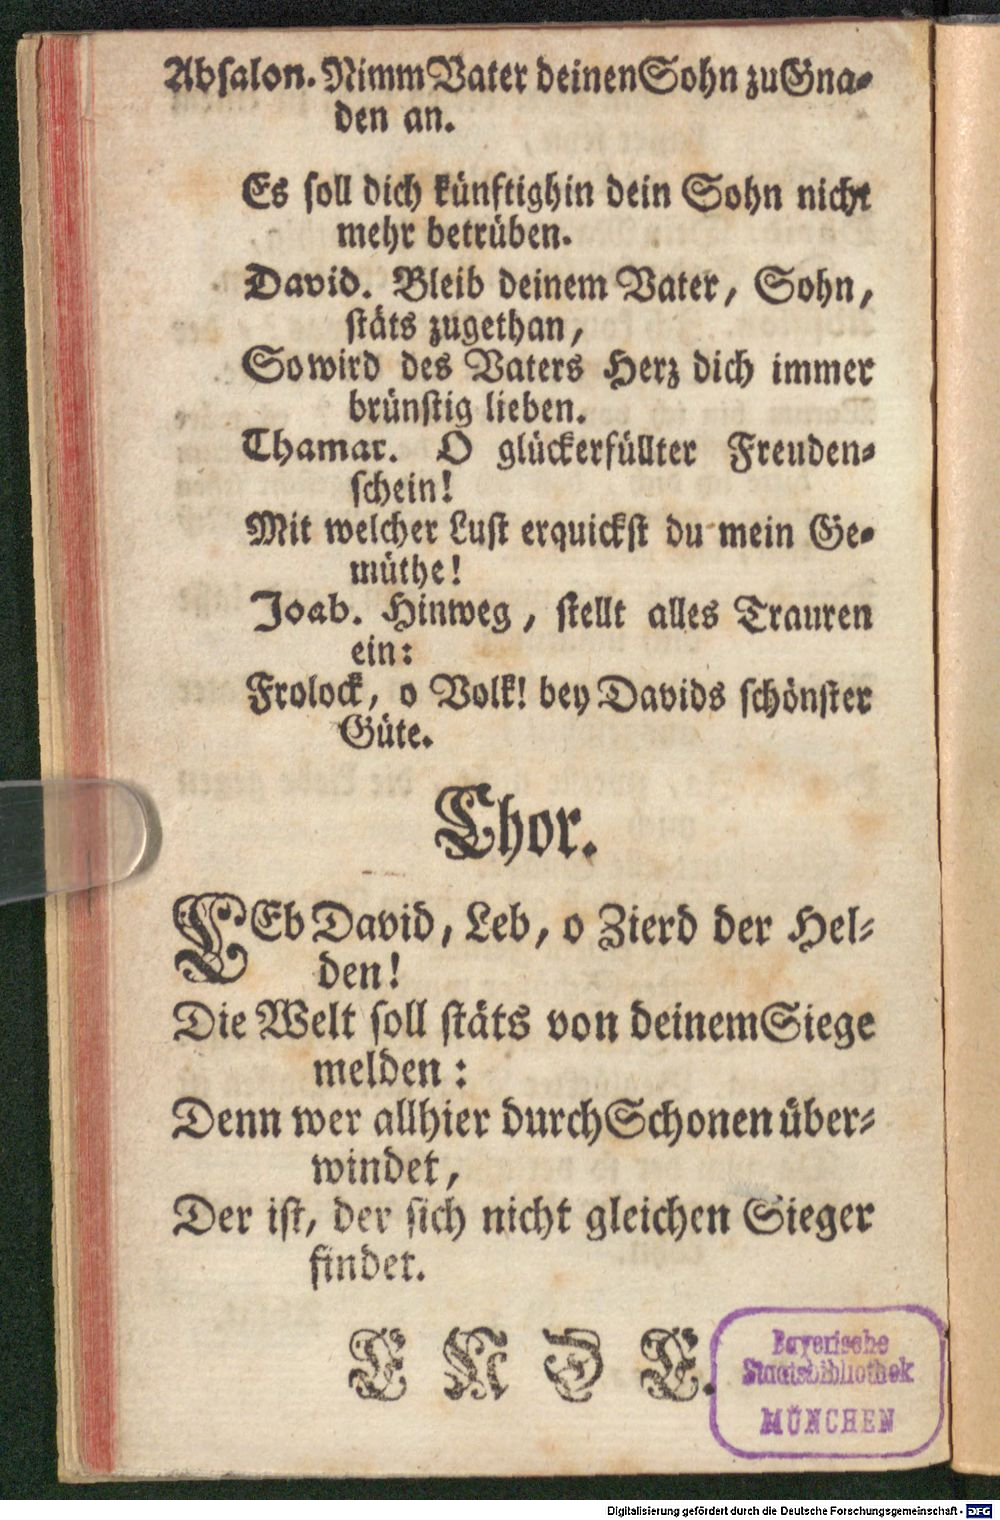 Absalon. Nimm Vater deinen Sohn zu Gna-
den an.
Es soll dich künftighin dein Sohn nicht
mehr betrüben.
David. Bleib deinem Vater, Sohn,
stäts zugethan,
So wird des Vaters Herz dich immer
brünstig lieben.
Thamar. O glückerfüllter Freuden-
schein!
Mit welcher Lust erquickst du mein Ge-
müthe!
Joab. Hinweg, stellt alles Trauren
ein:
Frolock, o Volk! bey Davids schönster
Güte.
Chor.
LEb David, Leb, o Zierd der Hel-
den!
Die Welt soll stäts von deinem Siege
melden:
Denn wer allhier durch Schonen über-
windet,
Der ist, der sich nicht gleichen Sieger
findet.
E N D E.
Bayerische
Staatsbibliothek
MÜNCHEN
Digitalisierung gefördert durch die Deutsche Forschungsgemeinschaft - DFG